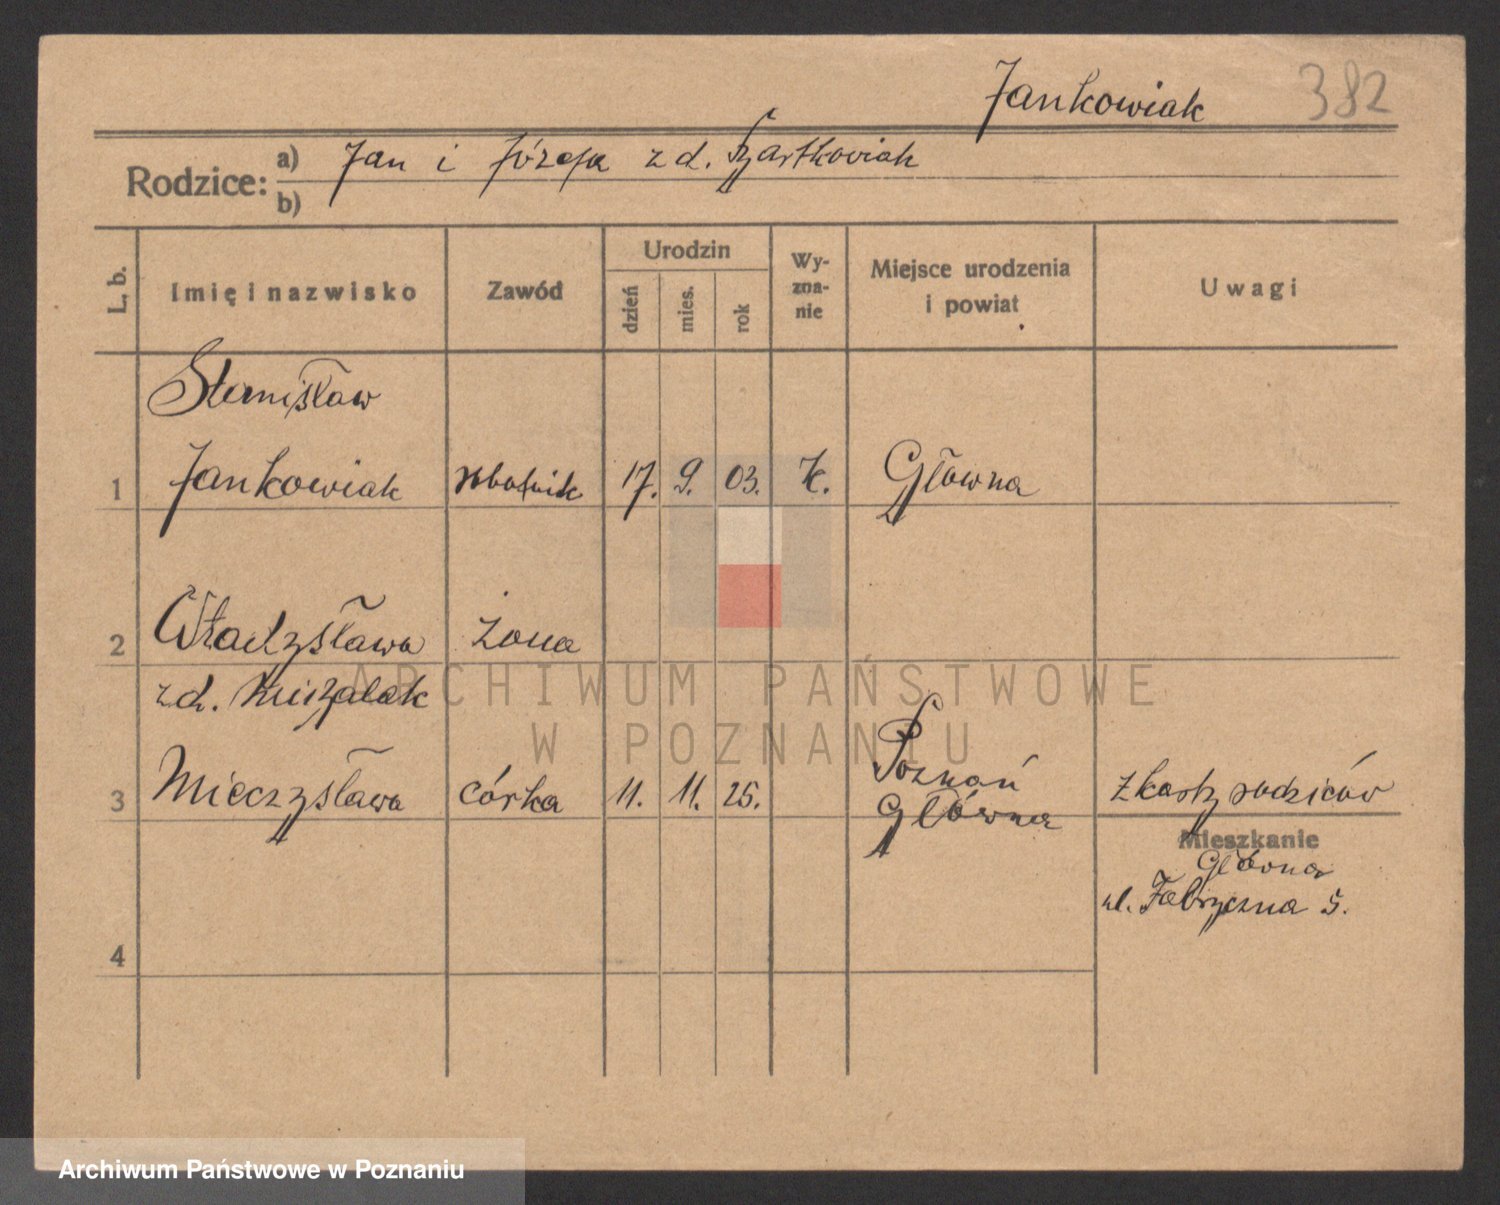 Jankowiak 382
Rodzice: a) Jan i Józefa z d. Szartkowiak
b)
L. b. Imię i nazwisko Zawód Urodzin dzień mies. rok Wy-zna-nie Miejsce urodzenia i powiat Uwagi
Stanisław
1 Jankowiak robotnik 17. 9. 03. K. Główna
2 Władysława żona
z d.
ARCHIWUM PAŃSTWOWE
W POZNANIU
Poznań
3 Mieczysława córka 11. 11. 25. Główna z karty rodziców
Mieszkanie
Główna
ul. Fabryczna 5.
4
Archiwum Państwowe w Poznaniu